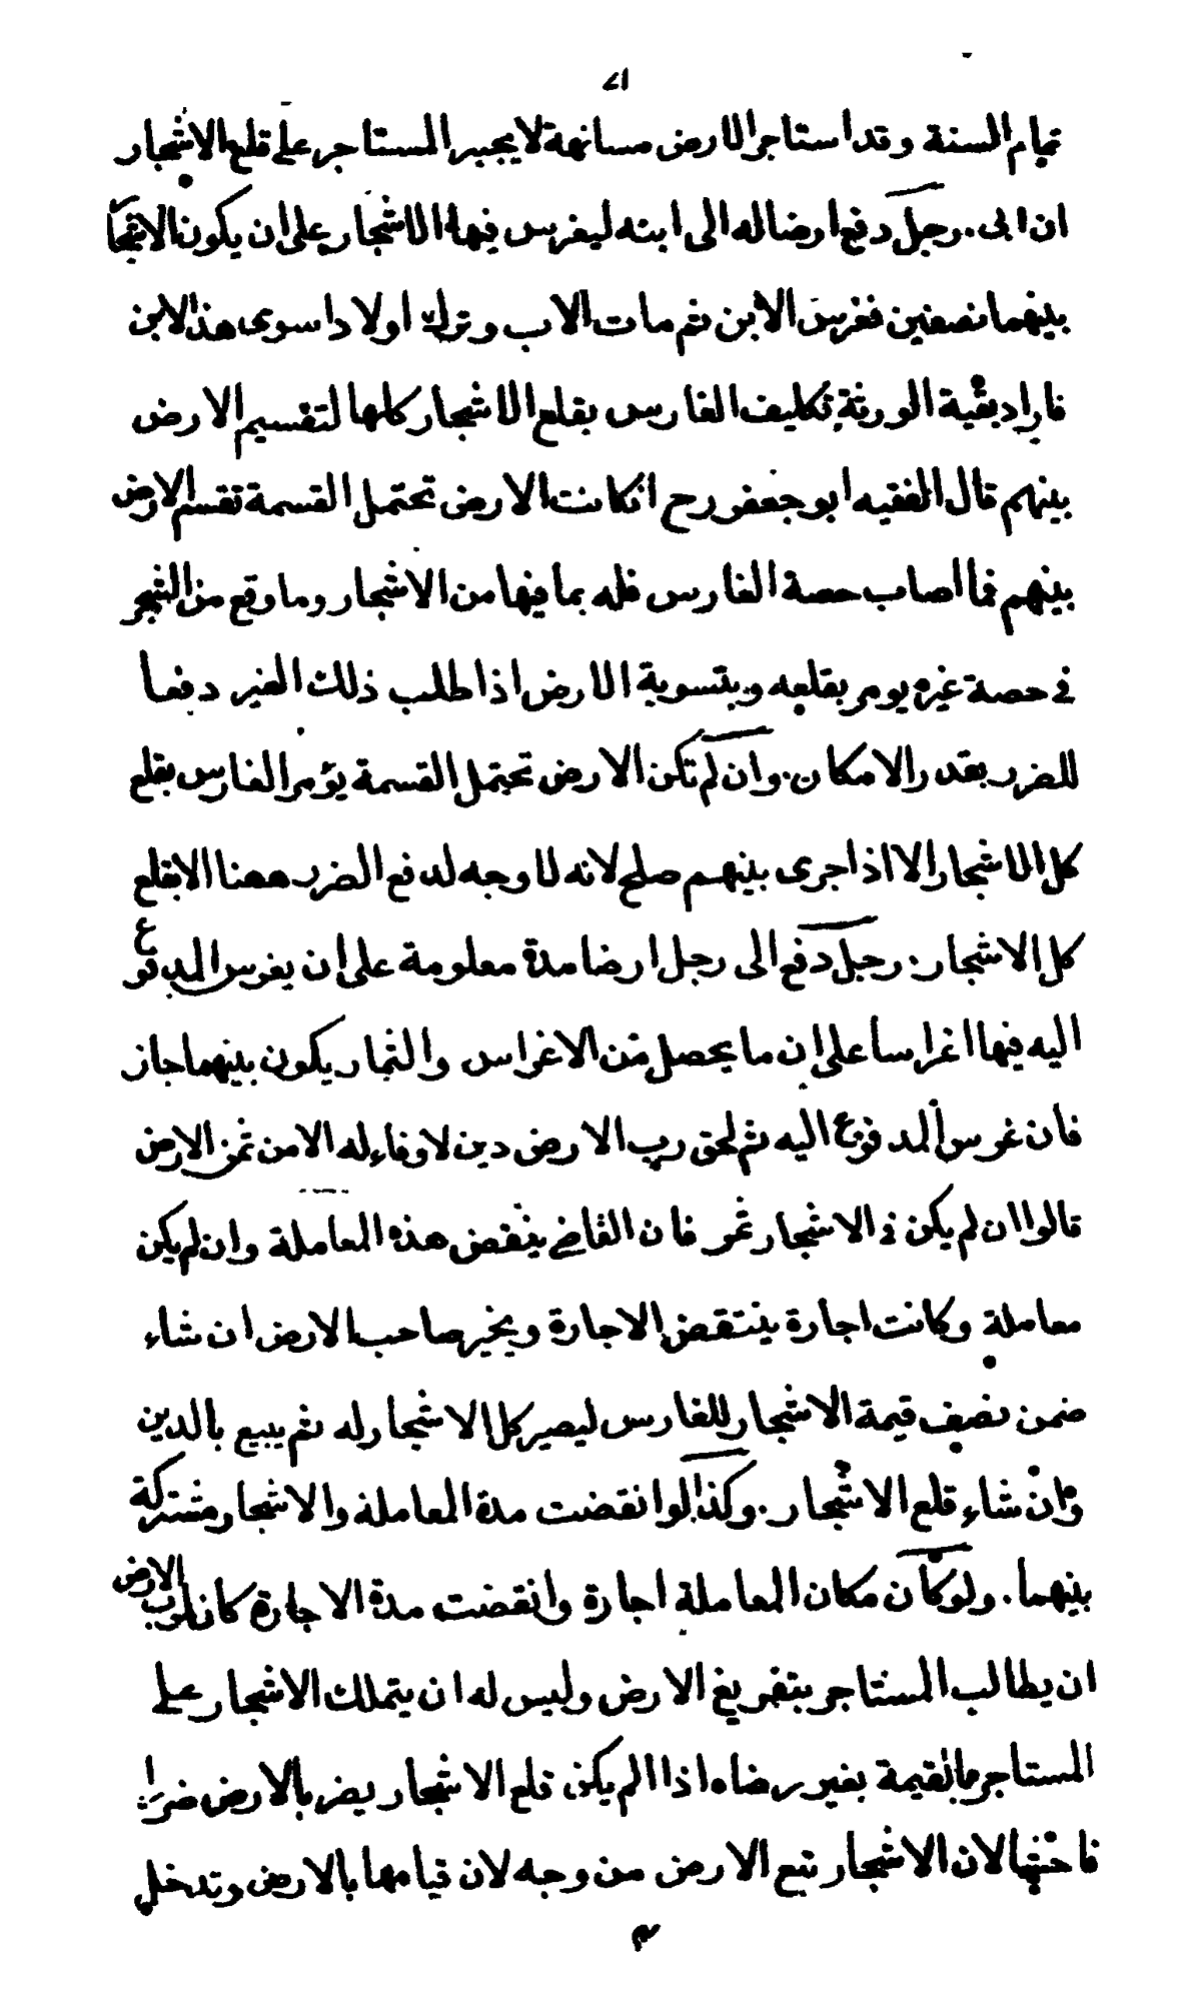 ٧١
تمام السنة وقد استاجر الارض مسانهة لا يجبر المستاجر على قلع الاشجار
ان ابى . رجل دفع ارضا له الى ابنه ليغرس فيها الاشجار على ان يكون الاشجا
بينهما نصفين فغرس الابن ثم مات الاب وترك اولادا سوى هذ الابن
فاراد بقية الورثة تكليف الغارس بقلع الاشجار كلها لتقسيم الارض
بينهم قال الفقيه ابو جعفر رح ان كانت الارض تحتمل القسمة تقسم الارض
بينهم فما اصاب حصة الغارس فله بما فيها من الاشجار وما وقع من الشجر
في حصة غيره يومر بقلعه وبتسوية الارض اذا طلب ذلك الغير دفعا
للضرر بقدر الامكان . وان لم تكن الارض تحتمل القسمة يؤمر الغارس بقلع
كل الاشجار الا اذا جرى بينهم صلح لانه لا وجه لدفع الضرر ههنا الا بقلع
كل الاشجار . رجل دفع الى رجل ارضا مدة معلومة على ان يغرس المدفوع
اليه فيها اغراسا على ان ما يحصل من الاغراس والثمار يكون بينهما جاز
فان غرس المدفوع اليه ثم لحق رب الارض دين لا وفاء له الا من ثمن الارض
قالوا ان لم يكن في الاشجار ثمر فان القاضي ينقض هذه المعاملة وان لم يكن
معاملة وكانت اجارة ينتقض الاجارة ويخير صاحب الارض ان شاء
ضمن نصف قيمة الاشجار للغارس ليصير كل الاشجار له ثم يبيع بالدين
وان شاء قلع الاشجار . وكذا لو انقضت مدة المعاملة والاشجار مشتركة
بينهما . ولو كان مكان المعاملة اجارة وانقضت مدة الاجارة كان لرب الارض
ان يطالب المستاجر بتفريغ الارض وليس له ان يتملك الاشجار على
المستاجر بالقيمة بغير رضاه اذا لم يكن قلع الاشجار يضر بالارض ضررا
فاحشا لان الاشجار تبع الارض من وجه لان قيامها بالارض وتدخل